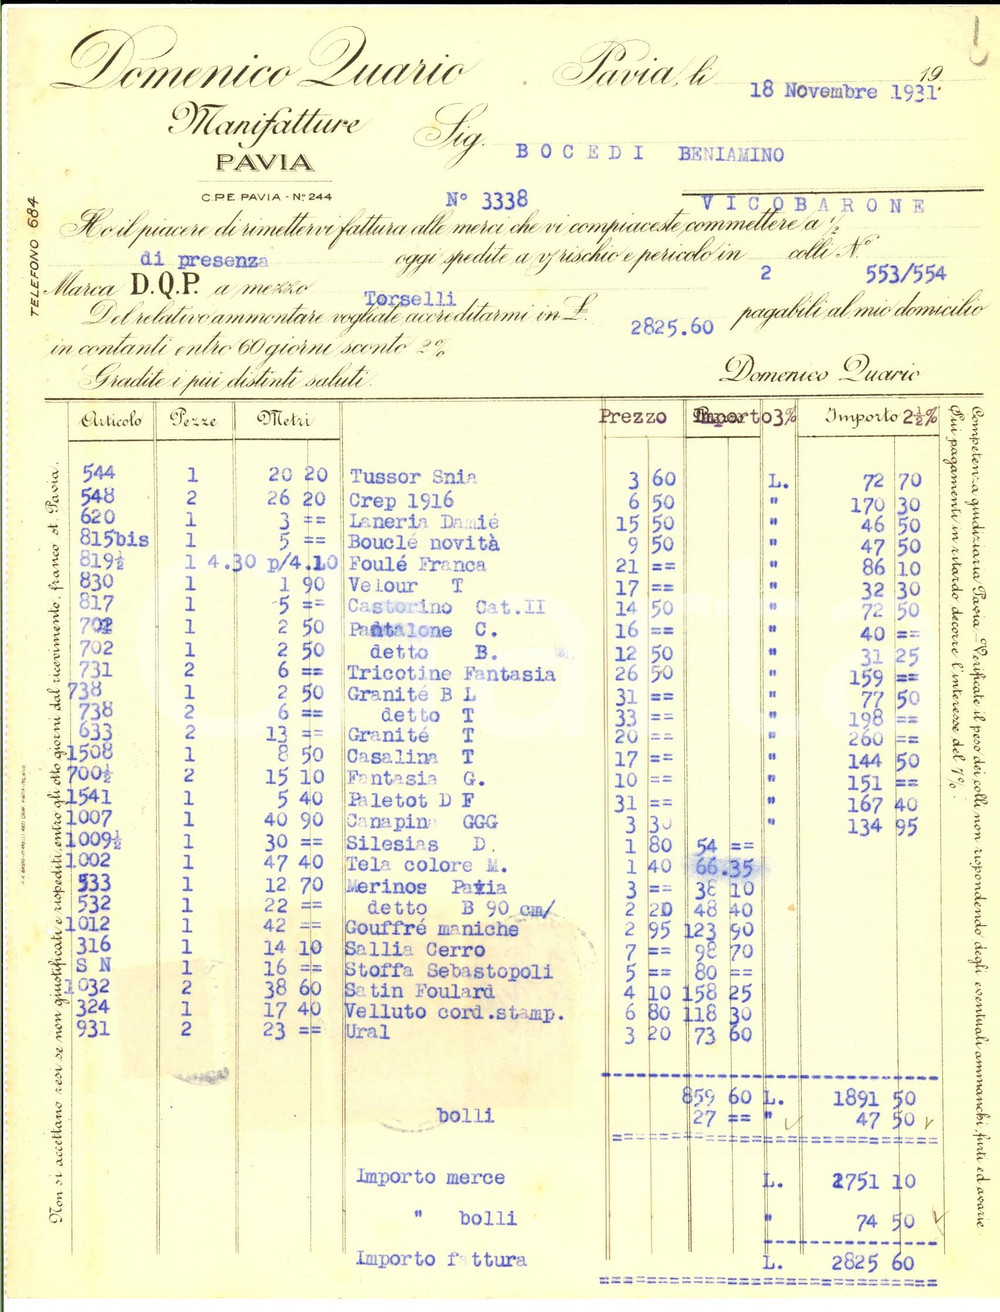 Domenico Quario
Manifatture
PAVIA
C.P.E PAVIA - Nº 244
TELEFONO 684
Pavia, li 18 Novembre 1931
Sig. BOCEDI BENIAMINO
Nº 3338 VICOBARONE
Ho il piacere di rimettervi fattura alle merci che vi compiaceste commettere a ½
di presenza oggi spedite a v/ rischio e pericolo in 2 colli Nº 553/554
Marca D.Q.P. a mezzo Torselli
Del relativo ammontare vogliate accreditarmi in £. 2825.60 pagabili al mio domicilio
in contanti entro 60 giorni sconto 2%
Gradite i più distinti saluti.
Domenico Quario
Articolo Pezze Metri Prezzo Importo 3% Importo 2½%
544 1 20 20 Tussor Snia 3 60 L. 72 70
548 2 26 20 Crep 1916 6 50 " 170 30
620 1 3 == Laneria Damié 15 50 " 46 50
815bis 1 5 == Bouclé novità 9 50 " 47 50
819½ 1 4.30 p/4.10 Foulé Franca 21 == " 86 10
830 1 1 90 Velour T 17 == " 32 30
817 1 5 == Castorino Cat.II 14 50 " 72 50
702 1 2 50 Pantalone C. 16 == " 40 ==
702 1 2 50 detto B. 12 50 " 31 25
731 2 6 == Tricotine Fantasia 26 50 " 159 ==
738 1 2 50 Granité B L 31 == " 77 50
738 2 6 == detto T 33 == " 198 ==
633 2 13 == Granité T 20 == " 260 ==
1508 1 8 50 Casalina T 17 == " 144 50
700½ 2 15 10 Fantasia G. 10 == " 151 ==
1541 1 5 40 Paletot D F 31 == " 167 40
1007 1 40 90 Canapina GGG 3 30 " 134 95
1009½ 1 30 == Silesias D. 1 80 54 ==
1002 1 47 40 Tela colore M. 1 40 66.35
533 1 12 70 Merinos Pavia 3 == 38 10
532 1 22 == detto B 90 cm/ 2 20 48 40
1012 1 42 == Gouffré maniche 2 95 123 90
316 1 14 10 Sallia Cerro 7 == 98 70
S N 1 16 == Stoffa Sebastopoli 5 == 80 ==
1032 2 38 60 Satin Foulard 4 10 158 25
324 1 17 40 Velluto cord.stamp. 6 80 118 30
931 2 23 == Ural 3 20 73 60
859 60 L. 1891 50
bolli 27 == " 47 50
Importo merce L. 2751 10
" bolli " 74 50
Importo fattura L. 2825 60
Non si accettano resi se non giustificati e rispediti, entro gli otto giorni dal ricevimento, franco st. Pavia.
Competenza giudiziaria Pavia - Verificate il peso dei colli, non rispondendo degli eventuali ammanchi, furti ed avarie.
Sui pagamenti in ritardo decorre l'interesse del 7%.